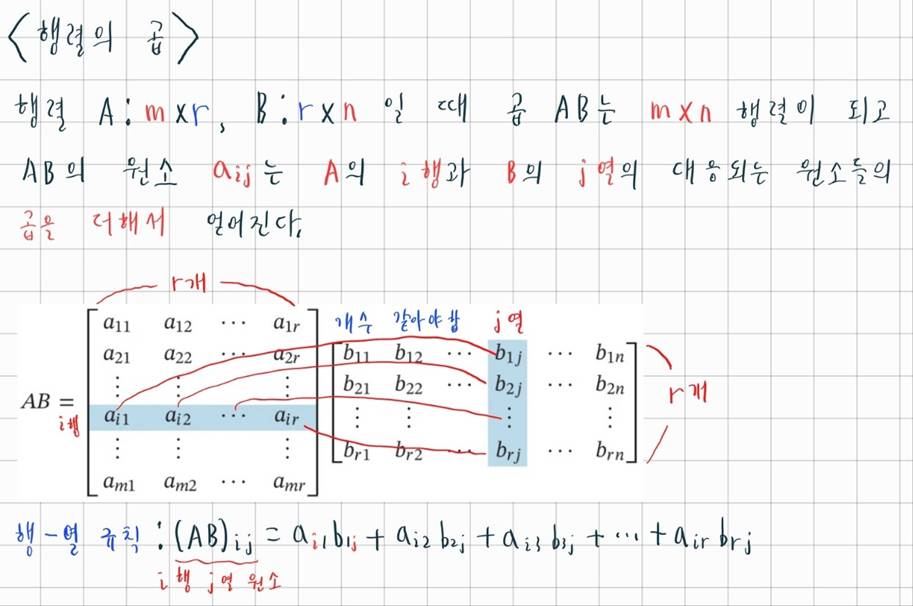 <행렬의 곱>
행렬 A:m×r, B:r×n 일 때 곱 AB는 m×n 행렬이 되고
AB의 원소 aij는 A의 i행과 B의 j열의 대응되는 원소들의
곱을 더해서 얻어진다.
r개
개수 같아야함 j열
AB =
a11 a12 ⋯ a1r
a21 a22 ⋯ a2r
⋮ ⋮ ⋮
i행 ai1 ai2 ⋯ air
⋮ ⋮ ⋮
am1 am2 ⋯ amr
b11 b12 ⋯ b1j ⋯ b1n
b21 b22 ⋯ b2j ⋯ b2n
⋮ ⋮ ⋮ ⋮
br1 br2 ⋯ brj ⋯ brn
r개
행-열 규칙 : (AB)ij = ai1b1j + ai2b2j + ai3b3j + ⋯ + airbrj
i행 j열 원소